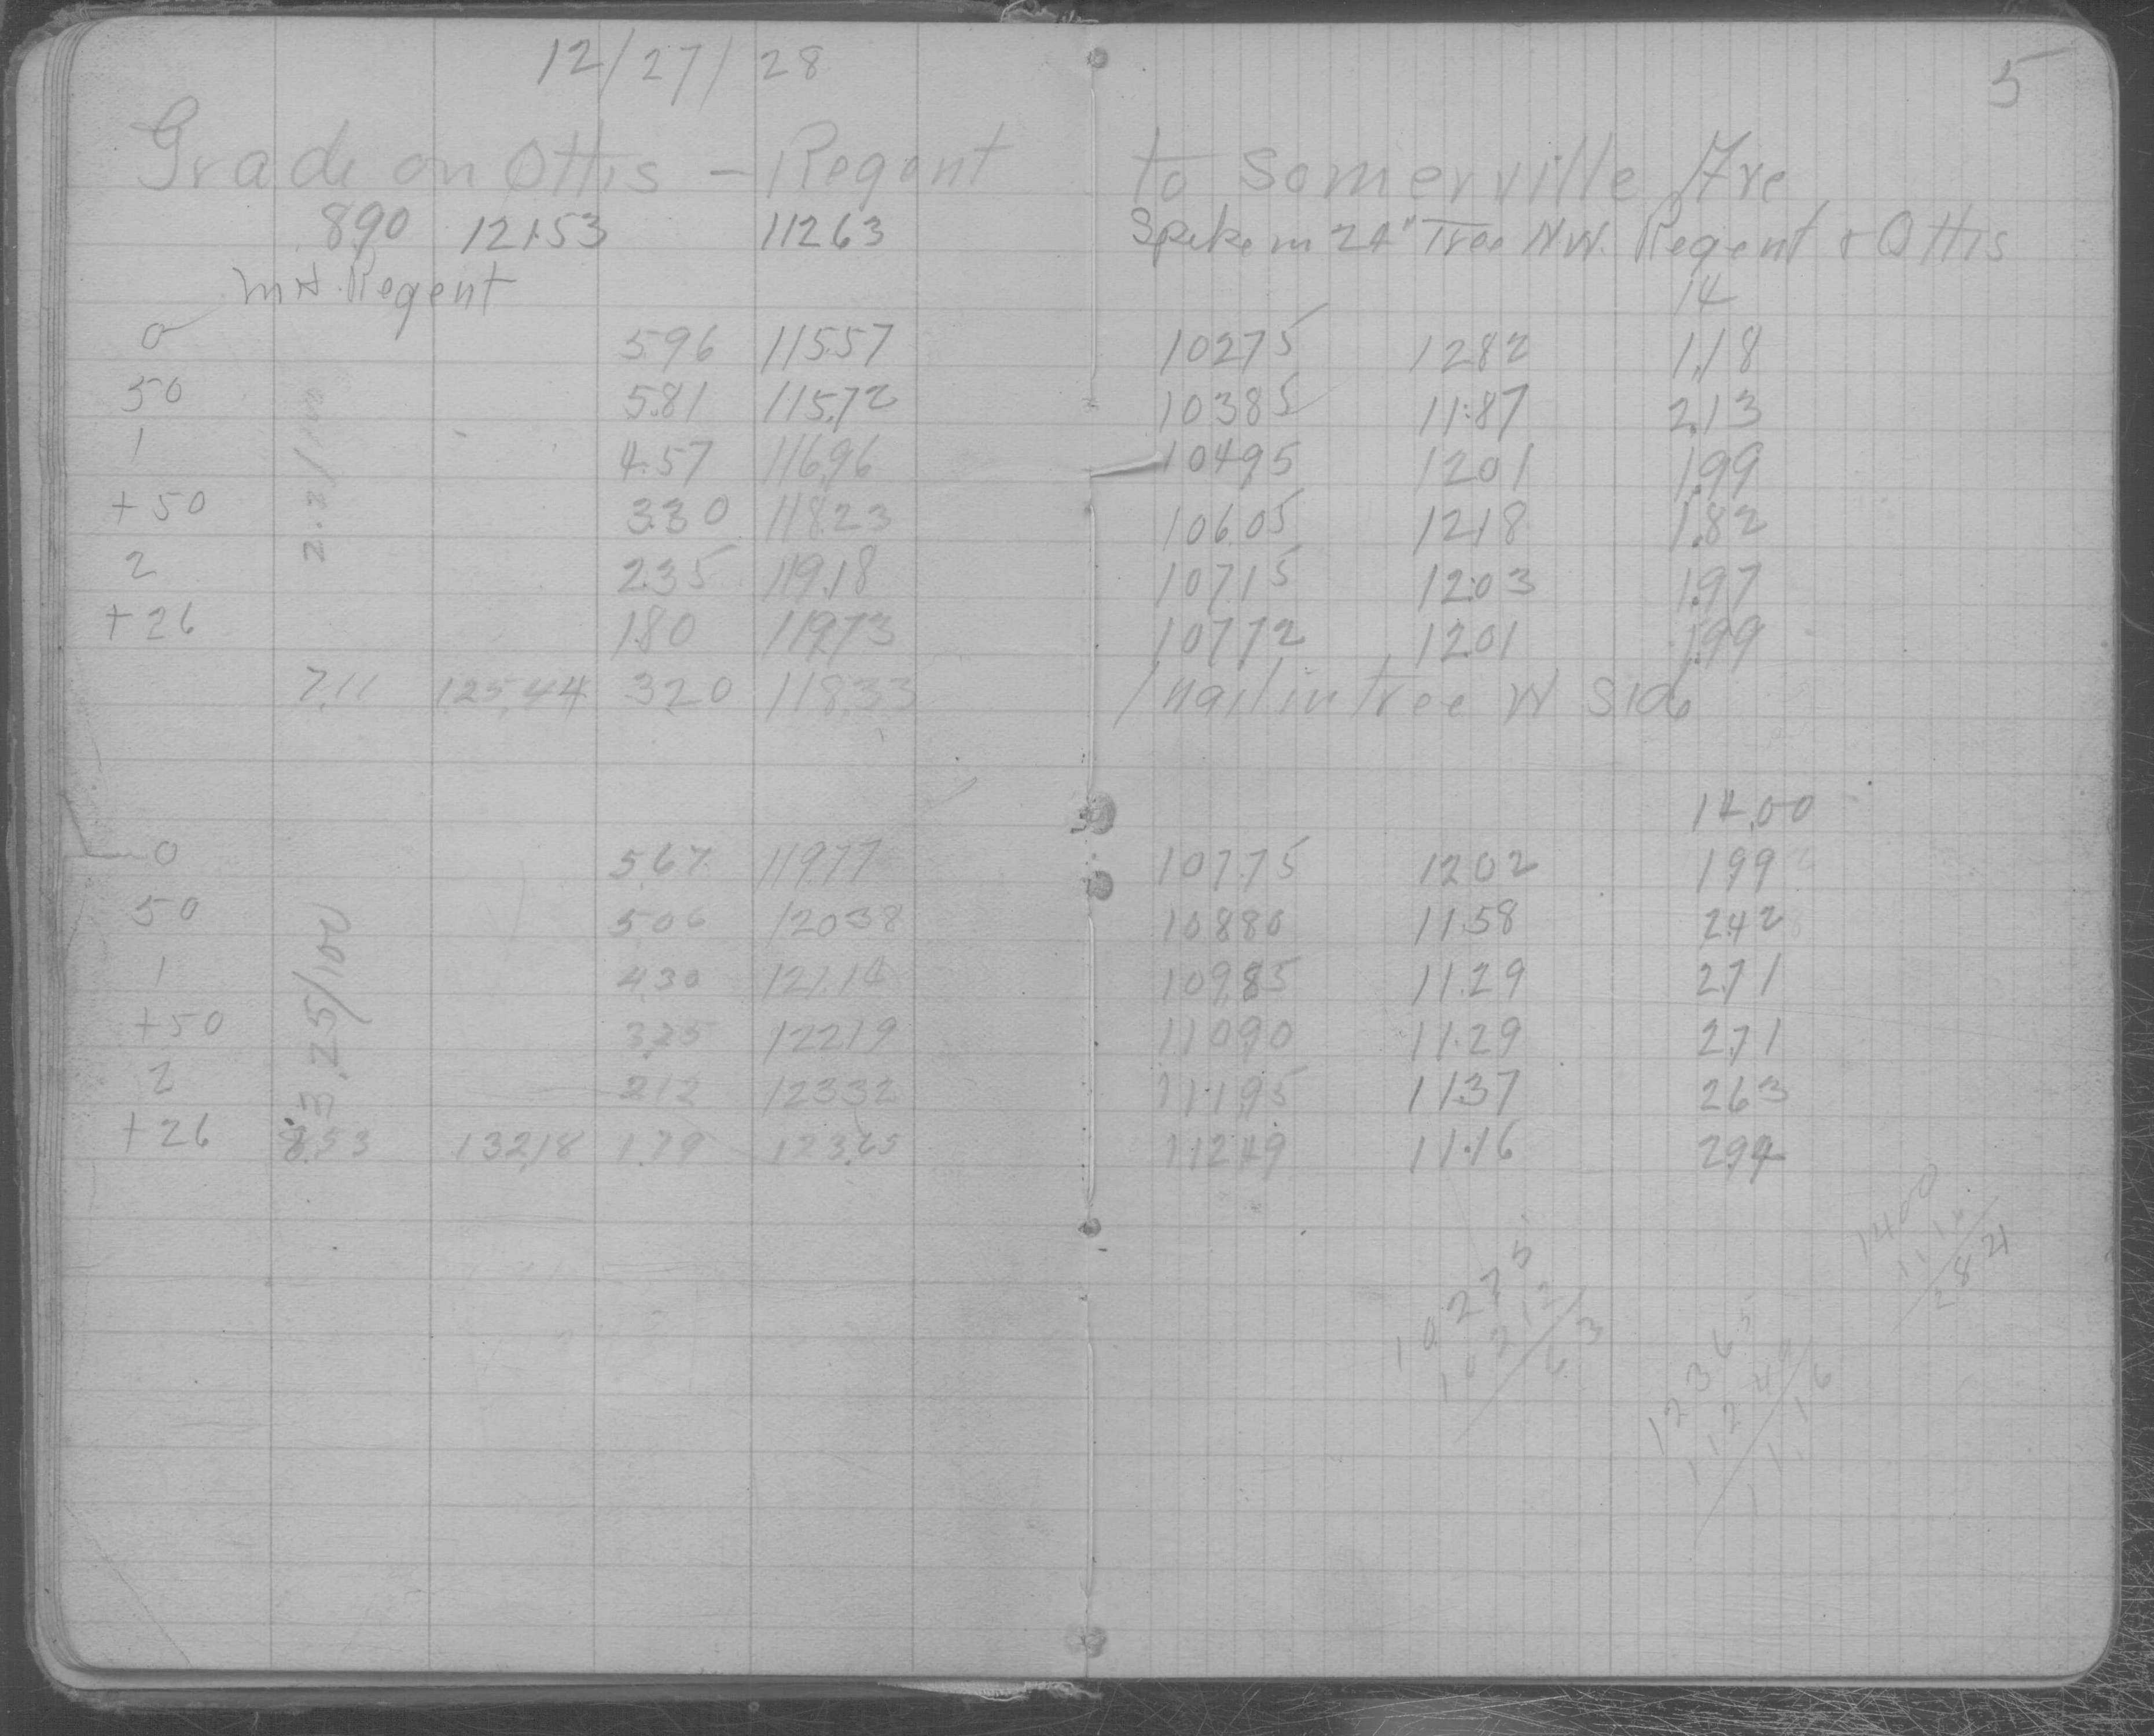 12/27/28
5
Grade on Ottis - Regent to Somerville Ave
8.90 121.53 112.63 Spike in 24" Tree N.W. Regent & Ottis
Regent 14
0 5.96 115.57 102.75 12.82 1.18
50 5.81 115.72 103.85 11.87 2.13
1 4.57 116.96 104.95 12.01 1.99
+50 3.30 118.23 106.05 12.18 1.82
2 2.35 119.18 107.15 12.03 1.97
+26 1.80 119.73 107.72 12.01 1.99
7.11 125.44 3.20 118.33 nail in tree W Side
14.00
0 5.67 119.77 107.75 12.02 1.99
50 5.06 120.38 108.80 11.58 2.42
1 4.30 121.14 109.85 11.29 2.71
+50 3.25 122.19 110.90 11.29 2.71
2 2.12 123.32 111.95 11.37 2.63
+26 8.53 132.18 1.79 123.65 112.49 11.16 2.94
1400
1116
284
10275
10212
63
12365
1124
1116